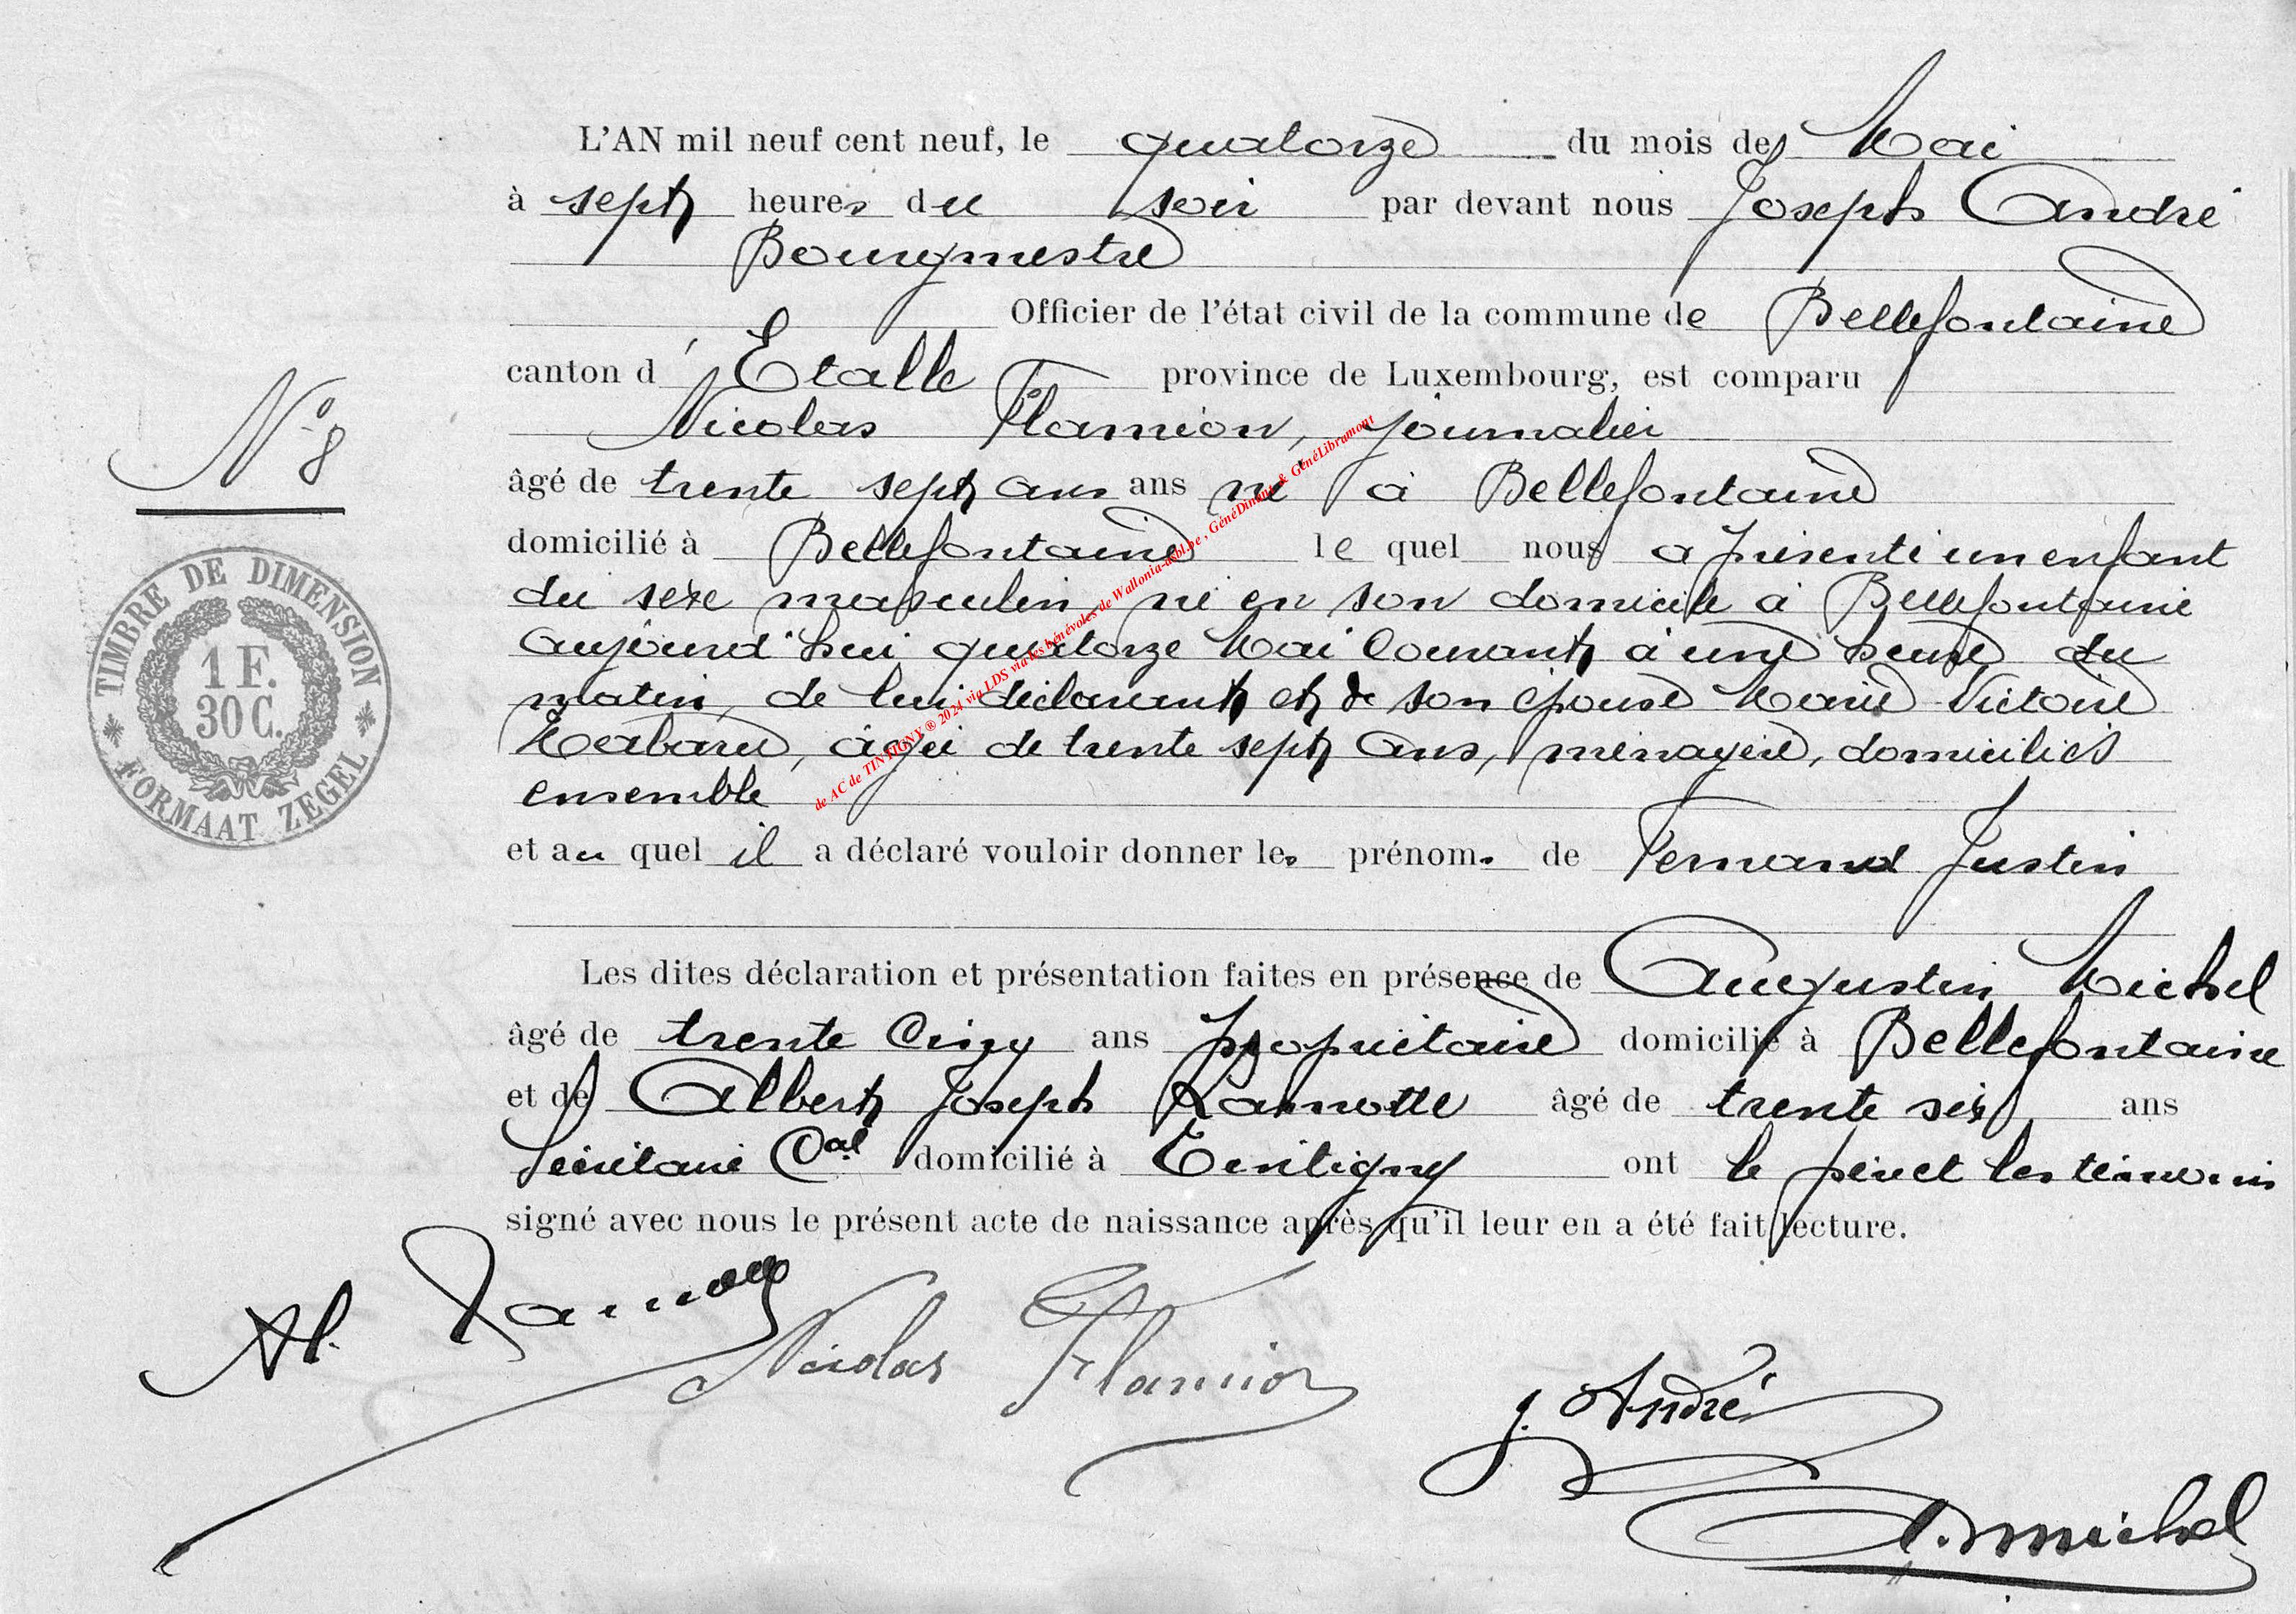 L'AN mil neuf cent neuf, le quatorze du mois de Mai
à sept heures du soir par devant nous Joseph André
Bourgmestre
Officier de l'état civil de la commune de Bellefontaine
canton d'Etalle province de Luxembourg, est comparu
Nicolas Flamion, journalier
âgé de trente sept ans ans né à Bellefontaine
domicilié à Bellefontaine lequel nous a présenté un enfant
du sexe masculin, né en son domicile à Bellefontaine
aujourd'hui quatorze Mai Courant à une heure du
matin, de lui déclarant et de son épouse Marie Victoire
âgée de trente sept ans, ménagère, domiciliés
ensemble
et auquel il a déclaré vouloir donner les prénoms de Fernand Justin
Les dites déclaration et présentation faites en présence de Augustin Michel
âgé de trente Cinq ans propriétaire domicilié à Bellefontaine
et de Albert Joseph Lamotte âgé de trente six ans
Secrétaire Cal domicilié à Tintigny ont le père et les témoins
signé avec nous le présent acte de naissance après qu'il leur en a été fait lecture.
N° 8
TIMBRE DE DIMENSION
1 F.
30 C.
FORMAAT ZEGEL
de AC de TINTIGNY ® 2024 via LDS via les bénévoles de Wallonia-asbl.be, GénéDinant & GénéLibramont
Nicolas Flamion
J. André
A. Michel